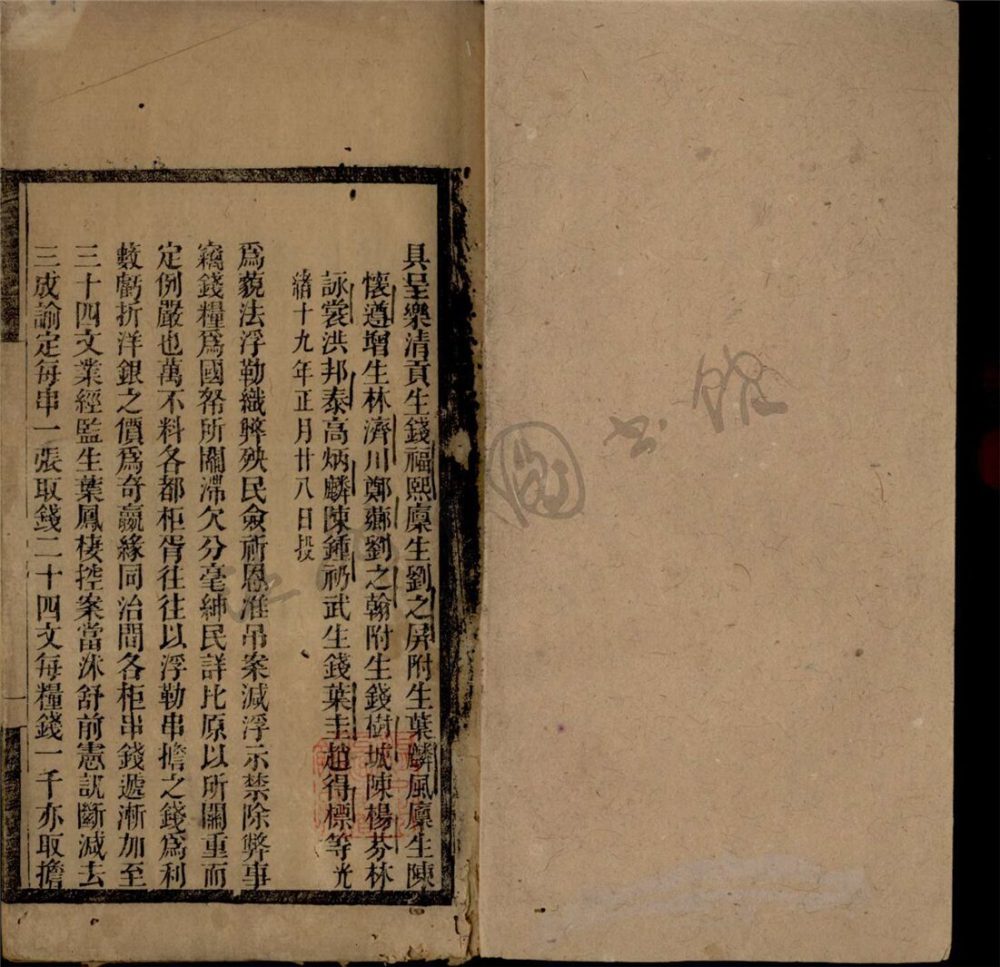 具呈樂清貢生錢福熙廩生劉之屏附生葉麟風廩生陳
懷遵增生林濟川鄭薌劉之翰附生錢樹城陳楊芬林
詠裳洪邦泰高炳麟陳鍾礽武生錢葉圭趙得標等光
緒十九年正月廿八日投
爲藐法浮勒織弊殃民僉祈恩准吊案減浮示禁除弊事
竊錢糧爲國帑所關滯欠分毫紳民詳比原以所關重而
定例嚴也萬不料各都柜胥往往以浮勒串擔之錢爲利
藪虧折洋銀之價爲奇贏緣同治間各柜串錢遞漸加至
三十四文業經監生葉鳳棲控案當沐舒前憲訊斷減去
三成諭定每串一張取錢二十四文每糧錢一千亦取擔
一
圖書館